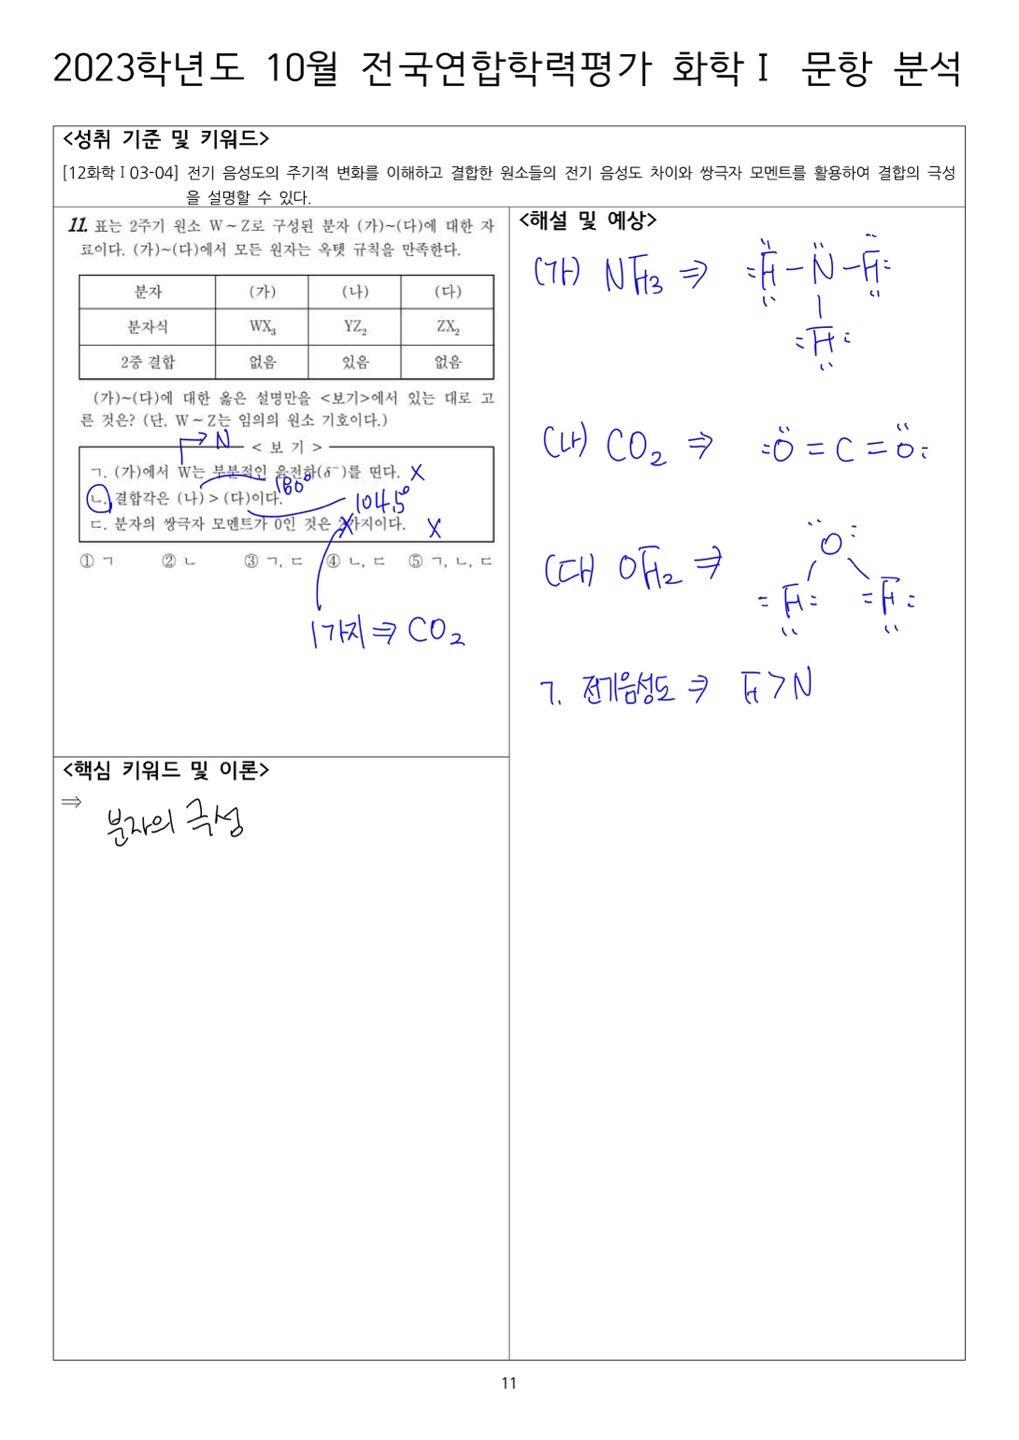 2023학년도 10월 전국연합학력평가 화학Ⅰ 문항 분석
<성취 기준 및 키워드>
[12화학Ⅰ03-04] 전기 음성도의 주기적 변화를 이해하고 결합한 원소들의 전기 음성도 차이와 쌍극자 모멘트를 활용하여 결합의 극성
을 설명할 수 있다.
11. 표는 2주기 원소 W ~ Z로 구성된 분자 (가)~(다)에 대한 자
료이다. (가)~(다)에서 모든 원자는 옥텟 규칙을 만족한다.
분자 (가) (나) (다)
분자식 WX₃ YZ₂ ZX₂
2중 결합 없음 있음 없음
(가)~(다)에 대한 옳은 설명만을 <보기>에서 있는 대로 고
른 것은? (단, W ~ Z는 임의의 원소 기호이다.)
N
< 보 기 >
ㄱ. (가)에서 W는 부분적인 음전하(δ⁻)를 띤다. X
180°
ㄴ. 결합각은 (나) > (다)이다.
104.5°
ㄷ. 분자의 쌍극자 모멘트가 0인 것은 2가지이다. X
① ㄱ ② ㄴ ③ ㄱ, ㄷ ④ ㄴ, ㄷ ⑤ ㄱ, ㄴ, ㄷ
1가지 ⇒ CO₂
<핵심 키워드 및 이론>
⇒ 분자의 극성
<해설 및 예상>
(가) NF₃ ⇒ F – N – F
F
(나) CO₂ ⇒ O = C = O
(다) OF₂ ⇒ O
F F
ㄱ. 전기음성도 ⇒ F > N
11